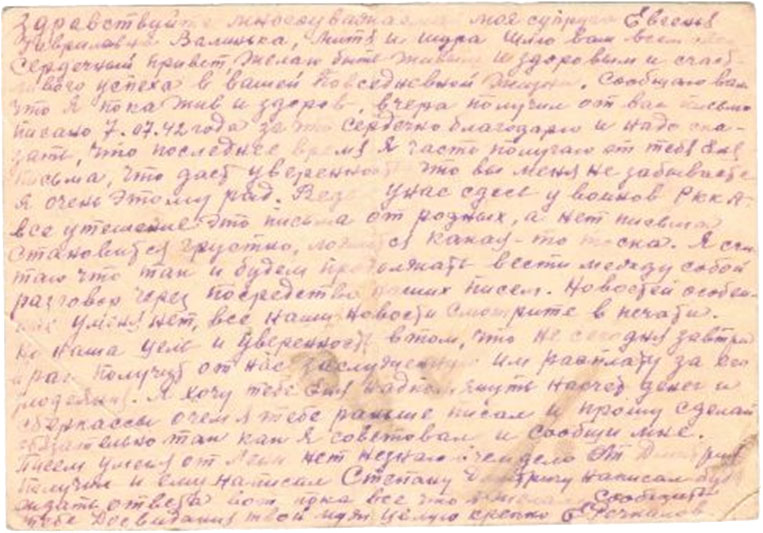 Здравствуйте многоуважаемая моя супруга Евгенья
Гавриловна Валинька, Митя и Шура шлю вам всем
Сердечный привет желаю быть живым и здоровым и счаст-
ливого успеха в вашей повседневной жизни. Сообщаю вам
что я пока жив и здоров, вчера получил от вас письмо
писано 7.07.42 года за что сердечно благодарю и надо ска-
зать, что последнее время я часто получаю от тебя Еня
письма, что даст уверенность что вы меня не забываете
я очень этому рад. Ведь у нас сдесь у воинов РККА
все утешение это письма от родных, а нет письма
становится грустно, ложится какая-то тоска. Я счи-
таю что так и будем продолжать вести между собой
разговор через посредство наших писем. Новостей особен-
ных у меня нет, все наши новости смотрите в печати.
Но наша цель и уверенность в том, что не сегодня завтра
враг получит от нас заслуженную им расплату за его
злодеяния. Я хочу тебе Еня насчет денег и
сберкассы о чем я тебе раньше писал и прошу сделай
обязательно так как я советовал и сообщи мне.
Писем у меня от Лени нет незнаю в чем дело От Дмитрия
получил и ему написал Степану написал буду
ждать ответа вот пока все что сообщить
тебе Досвидания твой муж целую крепко